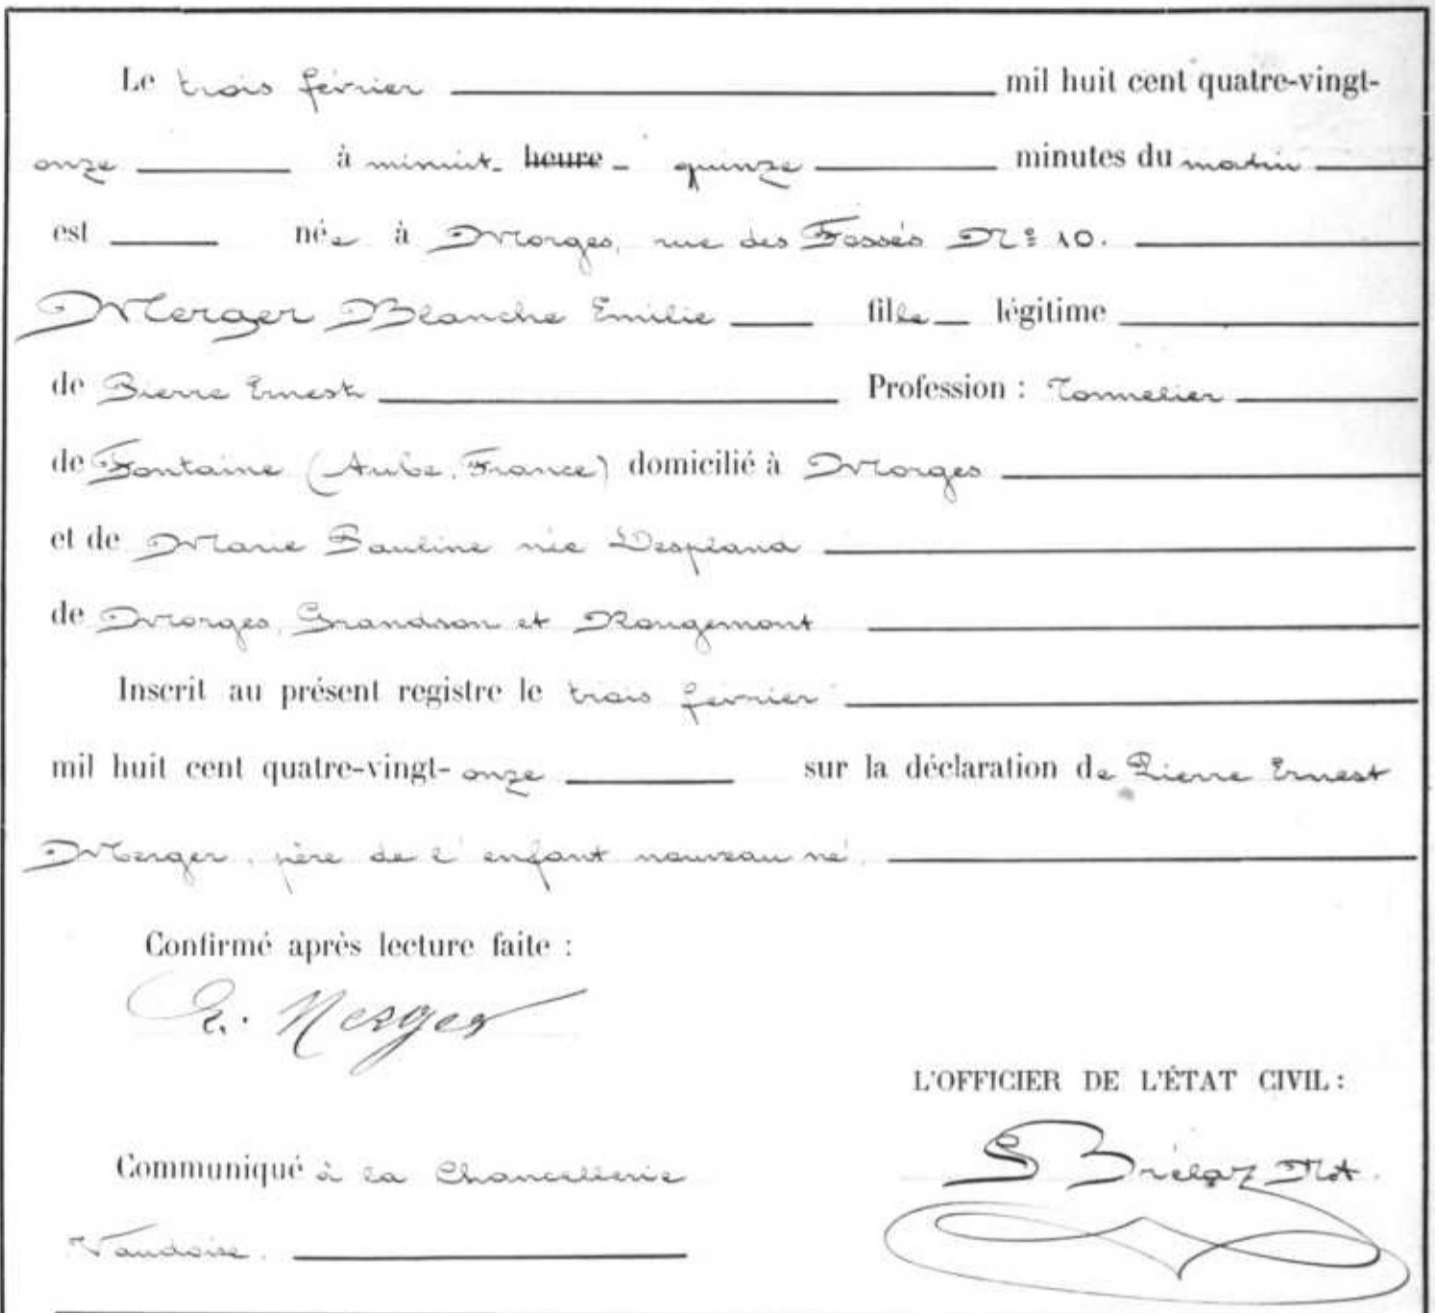 Le trois février mil huit cent quatre-vingt-
onze à minuit heure quinze minutes du matin
est née à Morges, rue des Fossés No 10.
Merger Blanche Emilie fille légitime
de Pierre Ernest Profession : Tonnelier
de Fontaine (Aube, France) domicilié à Morges
et de Marie Pauline née Despland
de Morges, Grandson et Rougemont
Inscrit au présent registre le trois février
mil huit cent quatre-vingt-onze sur la déclaration de Pierre Ernest
Merger, père de l'enfant nouveau né.
Confirmé après lecture faite :
E. Merger
L'OFFICIER DE L'ÉTAT CIVIL :
S Brélaz Not.
Communiqué à la Chancellerie
Vaudoise.